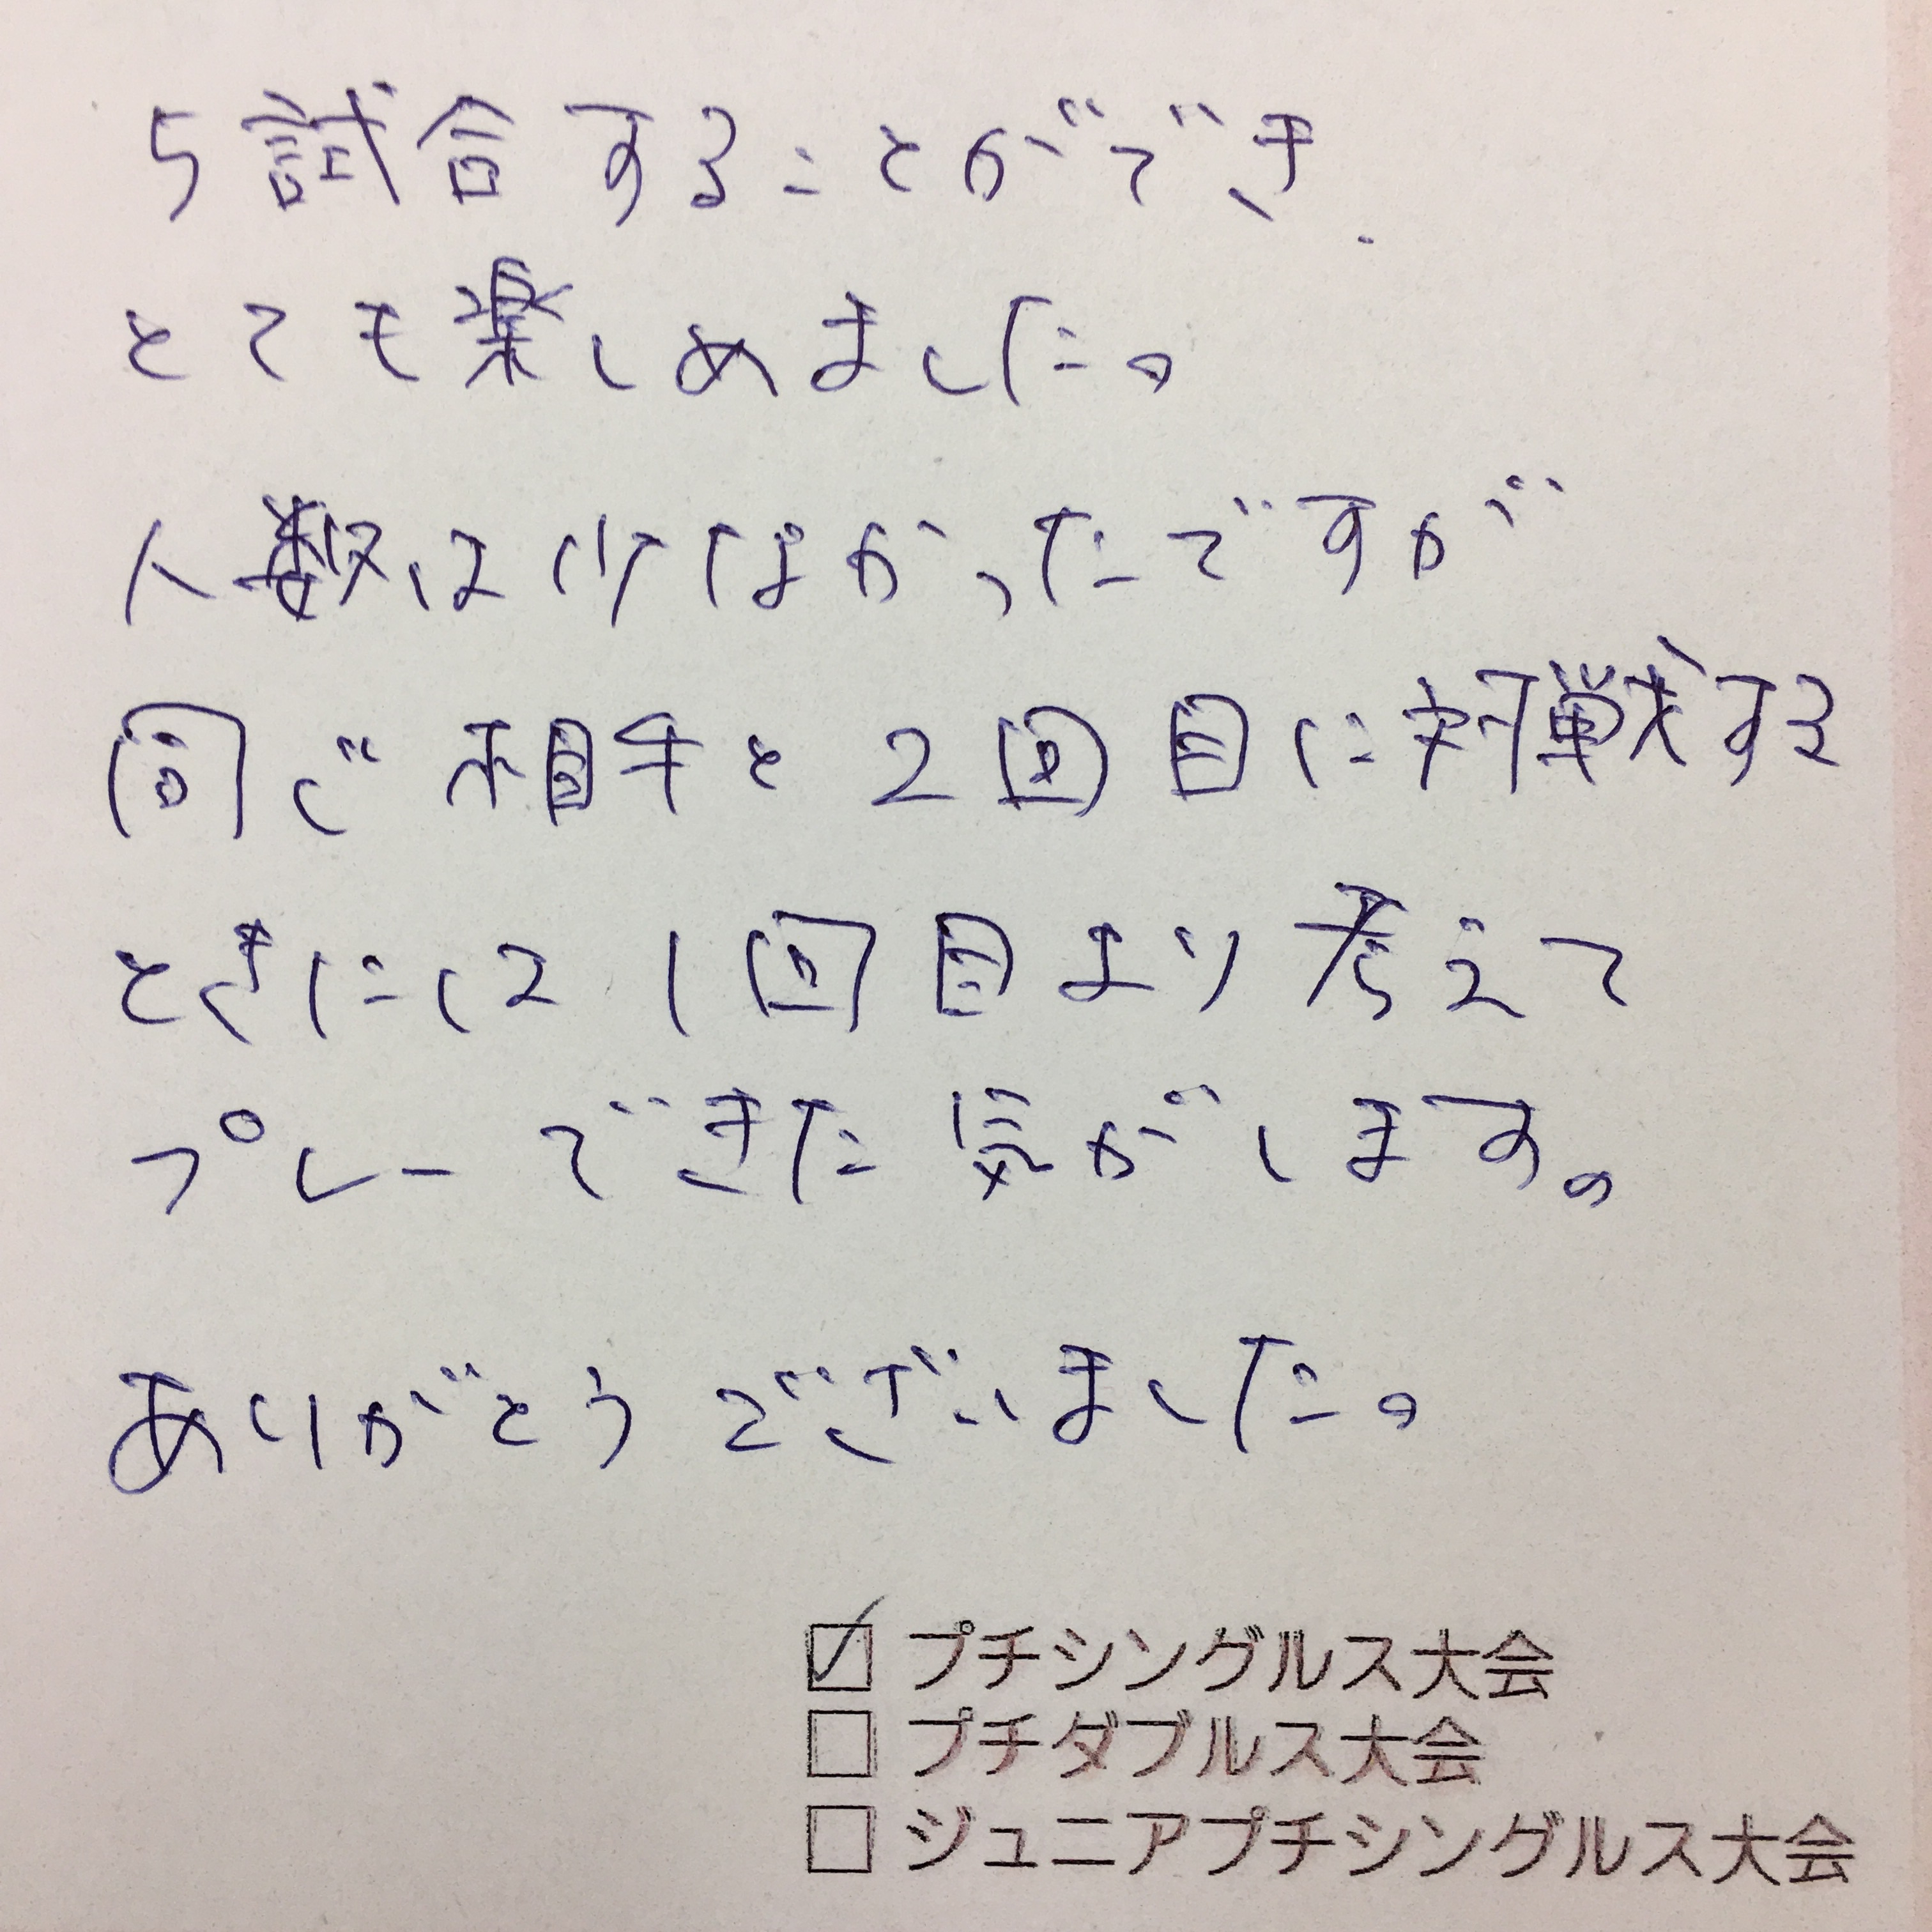 5試合することができ
とても楽しめました。
人数は少なかったですが
同じ相手と2回目に対戦する
ときには1回目より考えて
プレーできた気がします。
ありがとうございました。
☑プチシングルス大会
□プチダブルス大会
□ジュニアプチシングルス大会